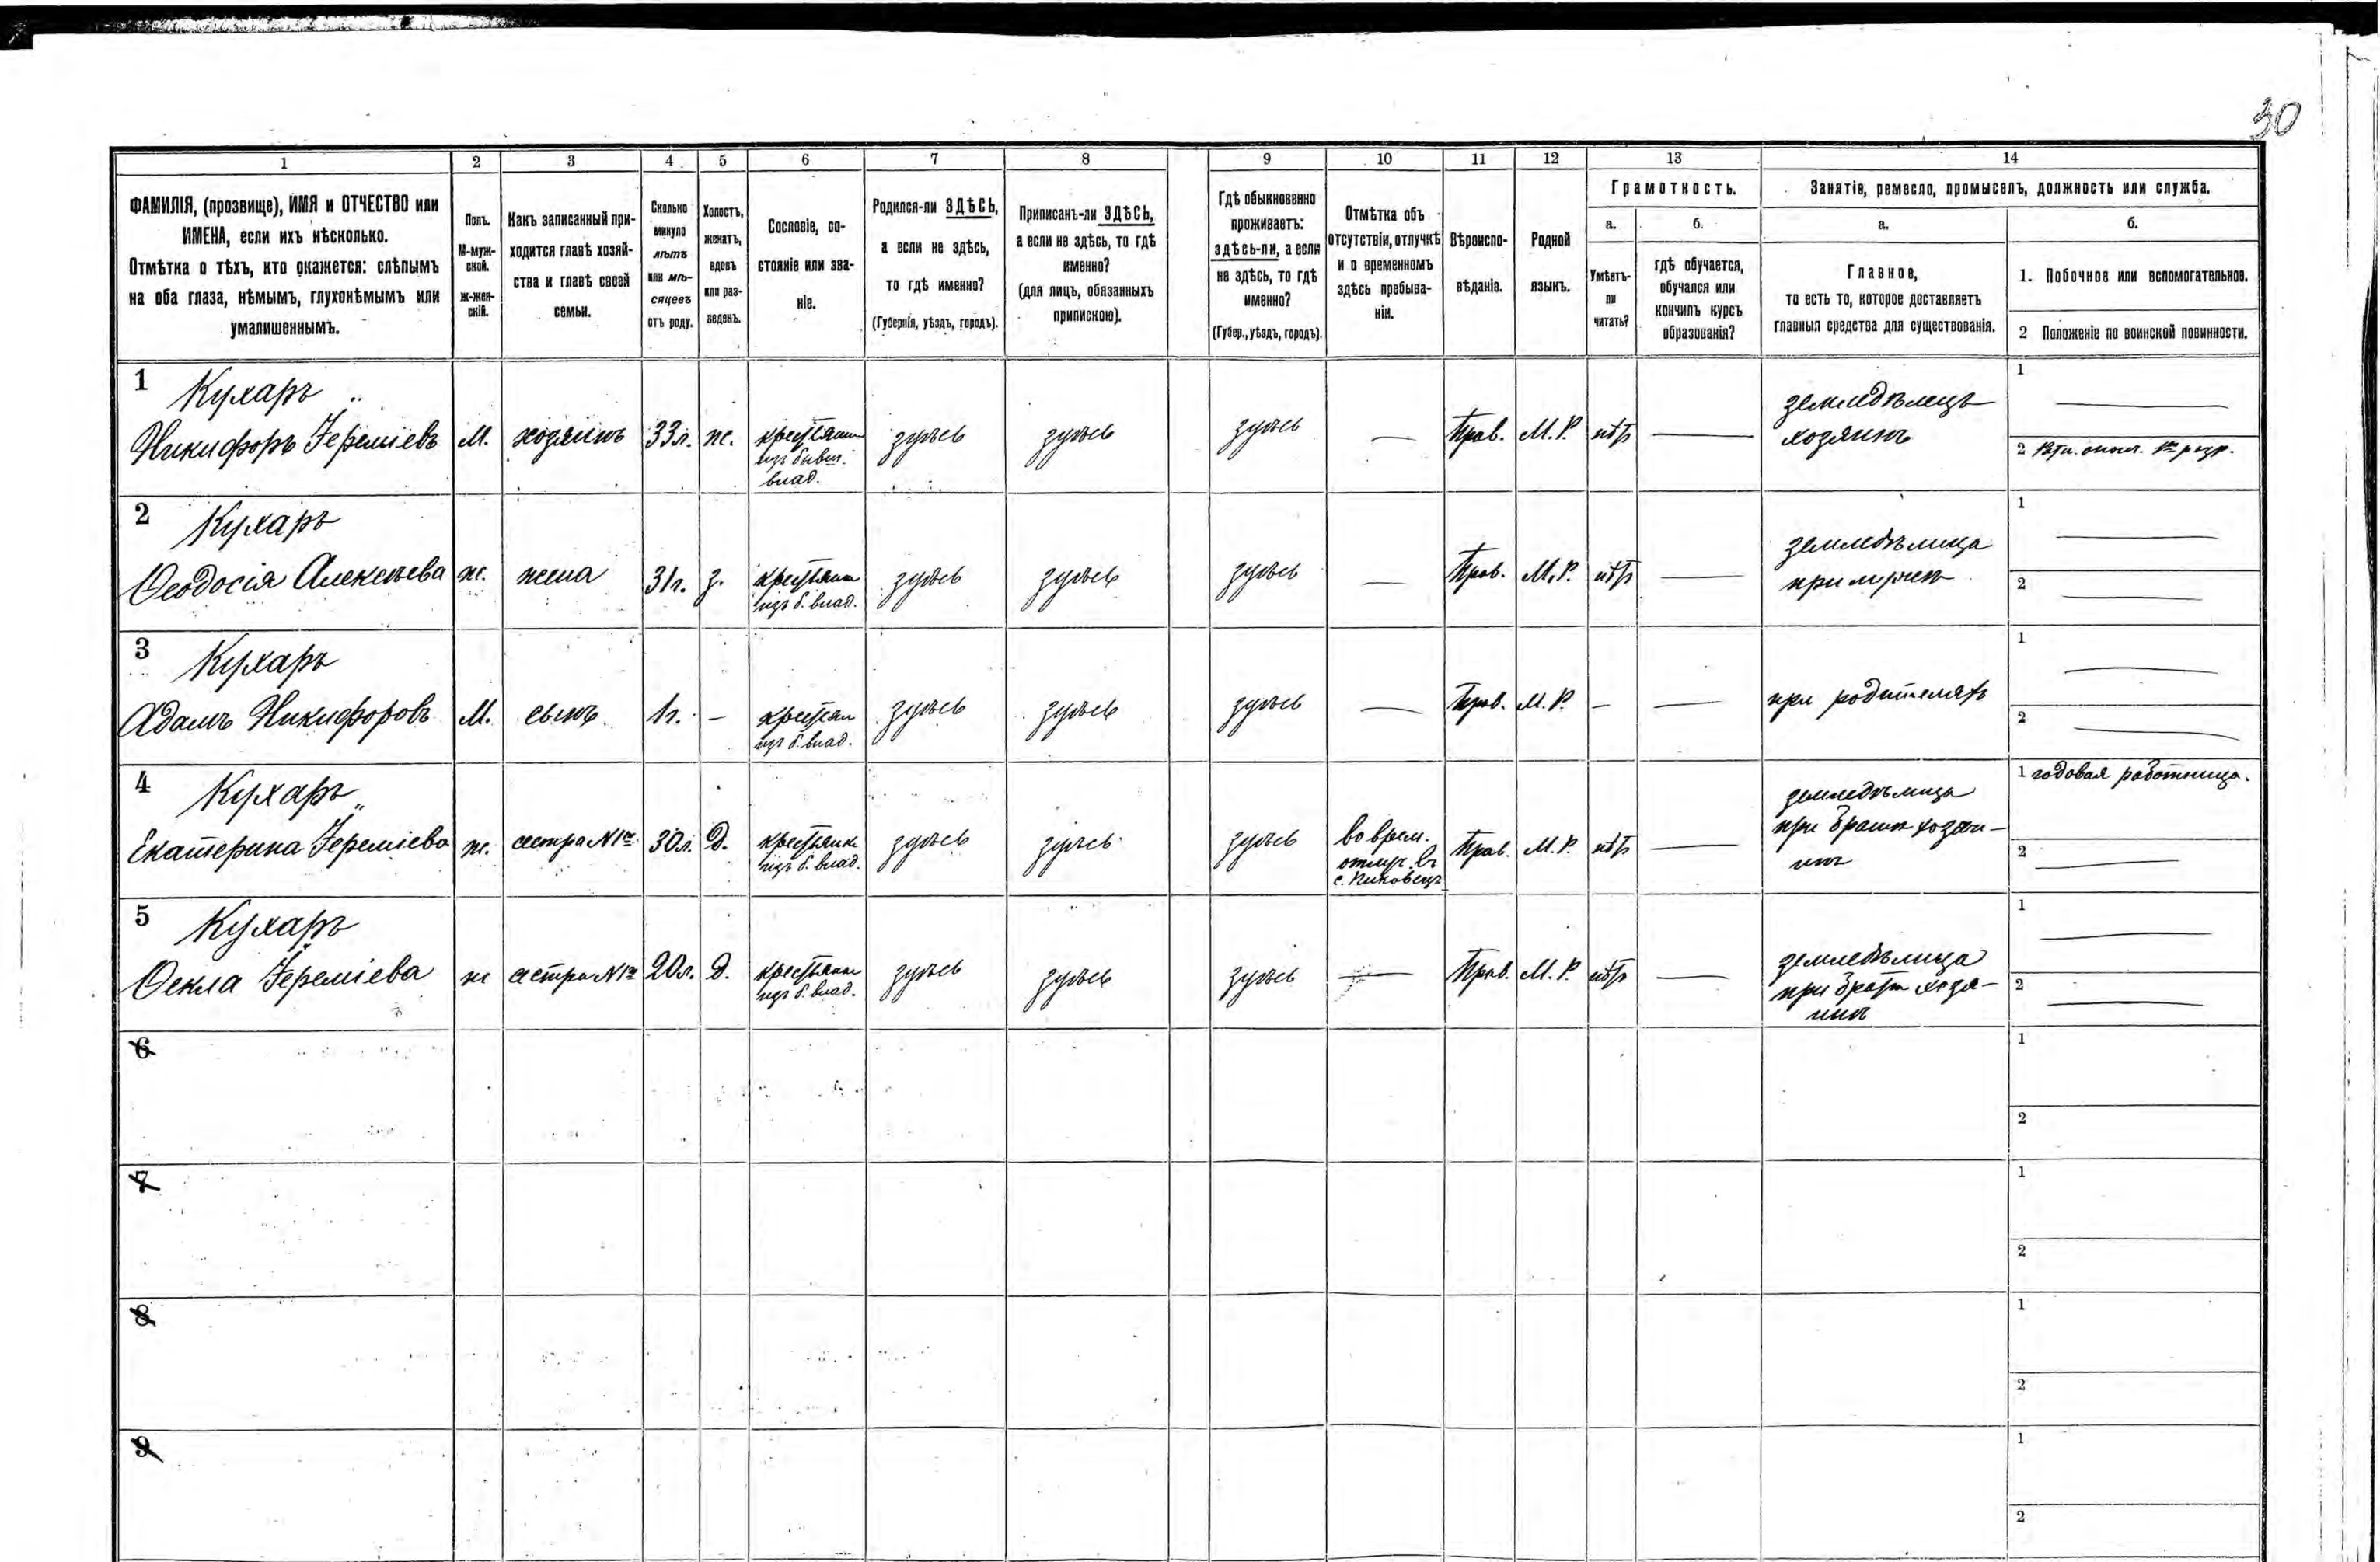 30
1 2 3 4 5 6 7 8 9 10 11 12 13 14
ФАМИЛІЯ, (прозвище), ИМЯ и ОТЧЕСТВО или
ИМЕНА, если ихъ нѣсколько.
Отмѣтка о тѣхъ, кто окажется: слѣпымъ
на оба глаза, нѣмымъ, глухонѣмымъ или
умалишеннымъ.
Полъ.
М-муж-
ской.
Ж-жен-
скій.
Какъ записанный при-
ходится главѣ хозяй-
ства и главѣ своей
семьи.
Сколько
минуло
лѣтъ
или мѣ-
сяцевъ
отъ роду.
Холостъ,
женатъ,
вдовъ
или раз-
веденъ.
Сословіе, со-
стояніе или зва-
ніе.
Родился-ли ЗДѢСЬ,
а если не здѣсь,
то гдѣ именно?
(Губернія, уѣздъ, городъ).
Приписанъ-ли ЗДѢСЬ,
а если не здѣсь, то гдѣ
именно?
(для лицъ, обязанныхъ
припискою).
Гдѣ обыкновенно
проживаетъ:
здѣсь-ли, а если
не здѣсь, то гдѣ
именно?
(Губер., уѣздъ, городъ).
Отмѣтка объ
отсутствіи, отлучкѣ
и о временномъ
здѣсь пребыва-
ніи.
Вѣроиспо-
вѣданіе.
Родной
языкъ.
Грамотность.
а.
Умѣетъ-
ли
читать?
б.
гдѣ обучается,
обучался или
кончилъ курсъ
образованія?
Занятіе, ремесло, промыселъ, должность или служба.
а.
Главное,
то есть то, которое доставляетъ
главныя средства для существованія.
б.
1. Побочное или вспомогательное.
2 Положеніе по воинской повинности.
1 Кухаръ
Никифоръ Іереміевъ
М.
хозяинъ
33л.
ж.
крестьянин
изъ бывш.
влад.
здѣсь
здѣсь
здѣсь
—
Прав.
М. Р.
нѣтъ
—
земледѣлецъ
хозяинъ
1 —
2
2 Кухаръ
Ѳеодосія Алексѣева
ж.
жена
31г.
з.
крестьянка
изъ б. влад.
здѣсь
здѣсь
здѣсь
—
Прав.
М. Р.
нѣтъ
—
земледѣлица
при мужѣ
1 —
2 —
3 Кухаръ
Адамъ Никифоровъ
М.
сынъ
1г.
—
крестьян
изъ б. влад.
здѣсь
здѣсь
здѣсь
—
Прав.
М. Р.
—
—
при родителяхъ
1 —
2 —
4 Кухаръ
Екатерина Іереміева
ж.
сестра N 1го
30л.
Д.
крестьянк
изъ б. влад.
здѣсь
здѣсь
здѣсь
во врем.
отлуч. въ
с.
Прав.
М. Р.
нѣтъ
—
земледѣлица
при братѣ хозяи-
нѣ
1 годовая работница.
2 —
5 Кухаръ
Ѳекла Іереміева
ж
сестра N 1го
20л.
Д.
крестьянк
изъ б. влад.
здѣсь
здѣсь
здѣсь
—
Прав.
М. Р.
нѣтъ
—
земледѣлица
при братѣ хозя-
инѣ
1 —
2 —
6
1
2
7
1
2
8
1
2
9
1
2